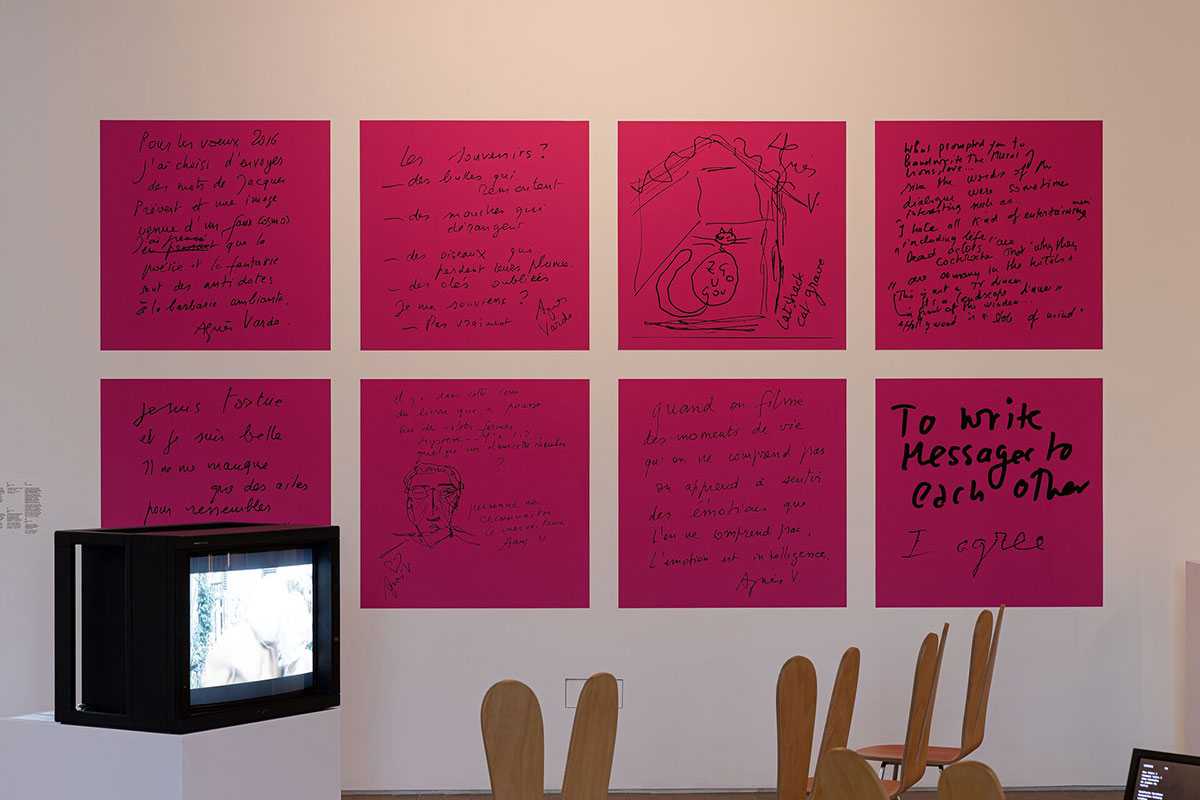 Pour les vœux 2016
J'ai choisi d'envoyer
des mots de Jacques
Prévert et une image
venue d'un faux cosmos
que la
poésie et la fantaisie
sont des antidotes
à la barbarie ambiante.
Agnès Varda.
Les souvenirs?
— des bulles qui
remontent
— des mouches qui
dérangent
— des oiseaux qui
perdent leurs plumes.
— des clés oubliées
Je me souviens?
— Pas vraiment
Agnès
Varda
Agnès
V.
ZGOUGOU
catshack
cat grave
What prompted you to
handwrite The Mural of
Lions love...
the words of the
dialogue were sometimes
interesting such as..
I hate all kind of entertainment
including life
Dead actors are
why they
are coming in the hotels
This is not a TV dinner
it's a landscape dinner
in front of the window...
Hollywood is a state of mind
Je suis Tortue
et je suis belle
Il ne me manque
que des ailes
pour ressembler
Il y a dans cette cour
du lierre qui a poussé
sur des volets fermés
Mystère
quelqu'un dans cette chambre
?
personne ne
reconnaîtra
ce merveilleux
Hans U
Agnès V.
quand on filme
des moments de vie
qu'on ne comprend pas
on apprend à sentir
des émotions que
l'on ne comprend pas.
L'émotion est intelligence.
Agnès V.
To write
Messages to
each other
I agree